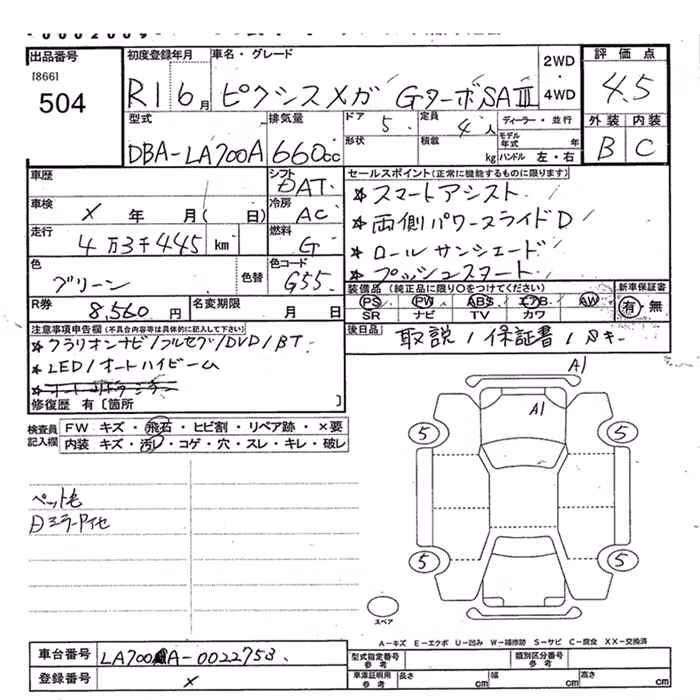 出品番号
[866]
504
初度登録年月
R1 6月
車名・グレード
ピクシスメガ GターボSAⅢ
2WD
・
4WD
評価点
4.5
外装 内装
B C
型式
DBA-LA700A
排気量
660cc
ドア 5
形状
定員 4人
積載 kg
ディーラー・並行
モデル年式 年
ハンドル 左・右
車歴
シフト
DAT
車検
× 年 月( 日)
冷房
AC
走行
4万3千445 km
燃料
G
色
グリーン
色替
色コード
G55
R券
8,560円
名変期限
月 日
セールスポイント(正常に機能するものに限ります)
★スマートアシスト
★両側パワースライドD
★ロールサンシェード
★プッシュスタート
装備品(純正品に限り○をつけてください)
PS PW ABS エアB AW
SR ナビ TV カワ
新車保証書
有・無
後日品
取説/保証書/Sキー
注意事項申告欄(不具合内容等は具体的に記入して下さい)
★クラリオンナビ/フルセグ/DVD/BT
★LED/オートハイビーム
修復歴 有〔箇所 〕
検査員記入欄
FW キズ・飛石・ヒビ割・リペア跡・×要
内装 キズ・汚レ・コゲ・穴・スレ・キレ・破レ
ペット毛
A1
A1
5
5
5
5
スペア
A-キズ E-エクボ U-凹み W-補修跡 S-サビ C-腐食 XX-交換済
車台番号
LA700A-0022753
登録番号
×
型式指定番号
参考
類別区分番号
参考
車庫証明用
参考
長さ cm
幅 cm
高さ cm